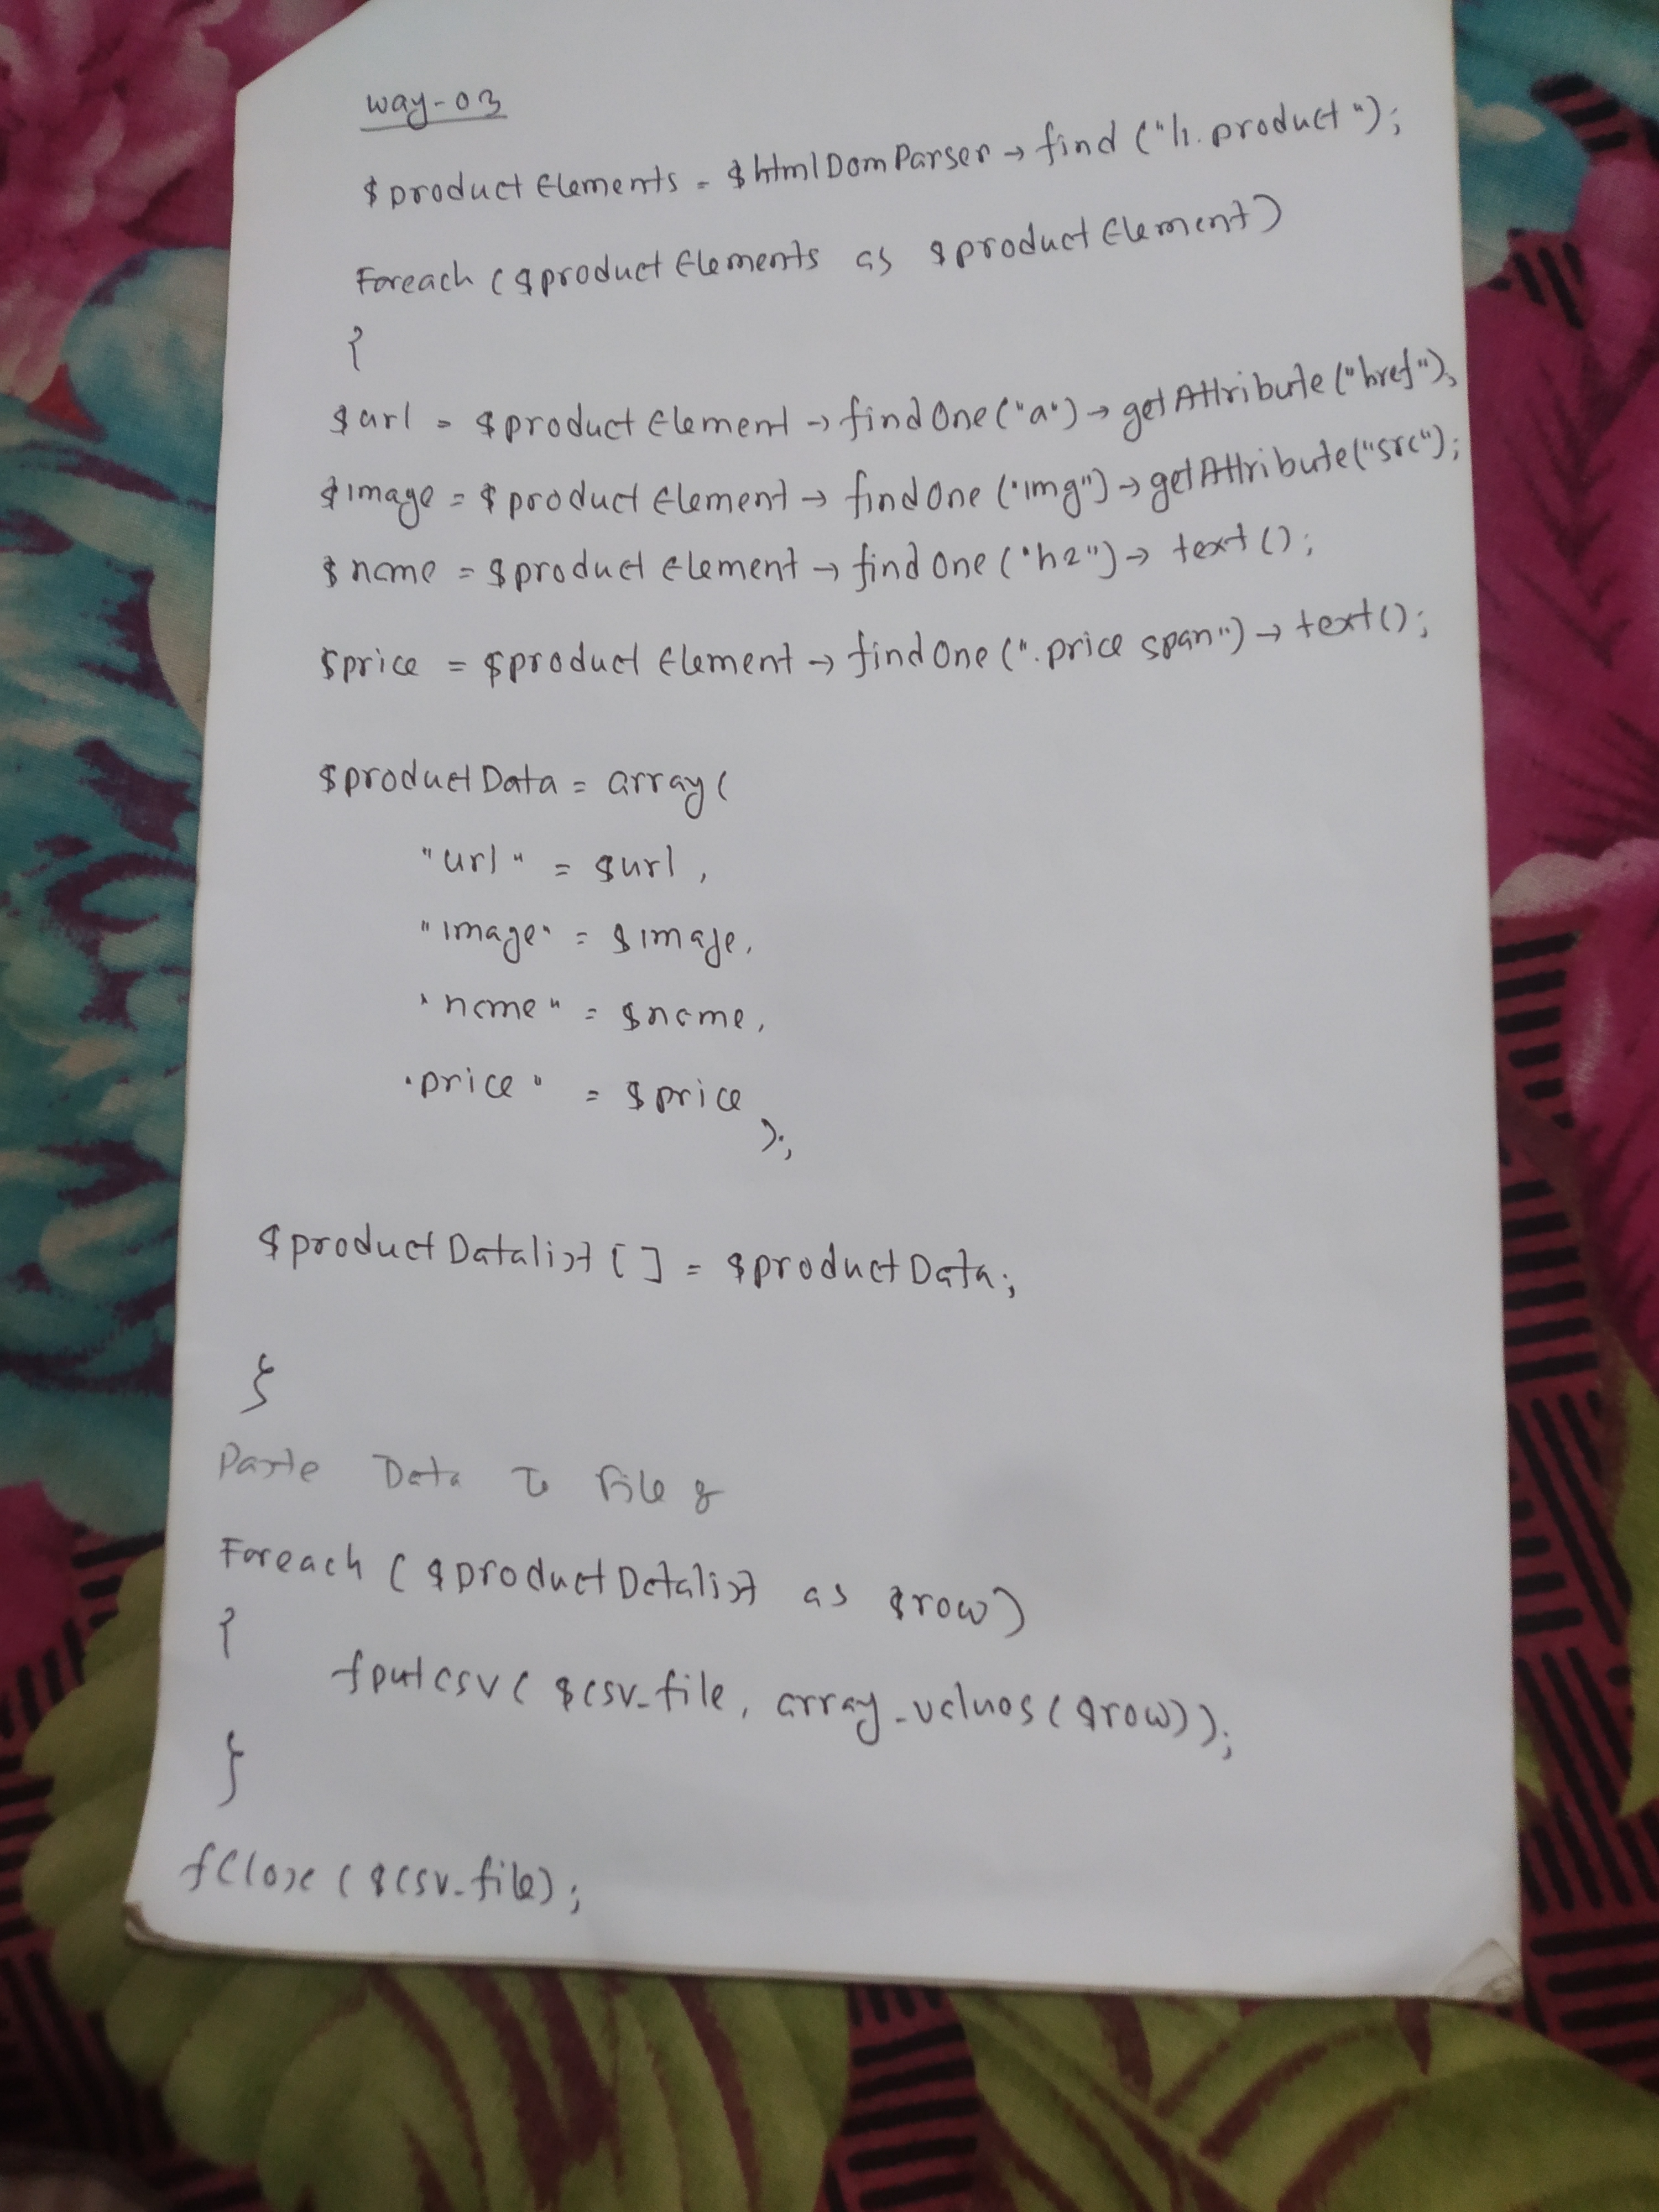 way-03
$productElements = $htmlDomParser → find ("li.product");
Foreach ($productElements as $productElement)
{
$url = $productElement → findOne("a") → getAttribute("href");
$image = $productElement → findOne ("img") → getAttribute("src");
$name = $productElement → findOne ("h2") → text();
$price = $productElement → findOne (".price span") → text();
$productData = array(
"url" = $url,
"image" = $image,
"name" = $name,
"price" = $price
);
$productDatalist[] = $productData;
}
Paste Data To File :
Foreach ($productDatalist as $row)
{
fputcsv($csv_file, array_values($row));
}
fclose($csv_file);